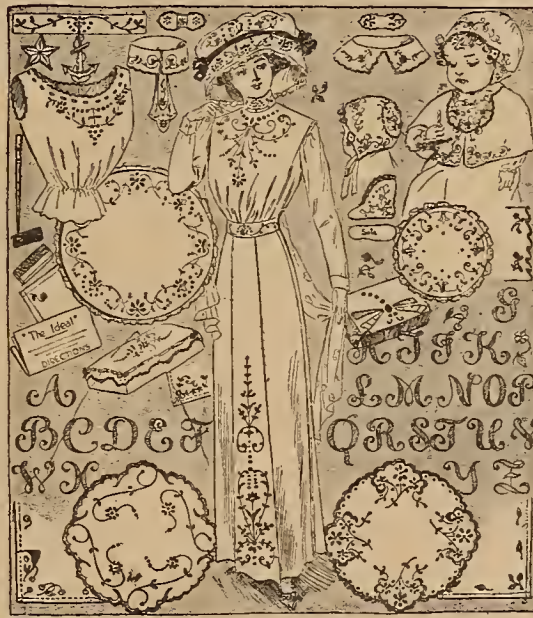 "The Ideal"
DIRECTIONS
A
BCDEF
WX
G
HIJK
LMNOP
QRSTUV
YZ